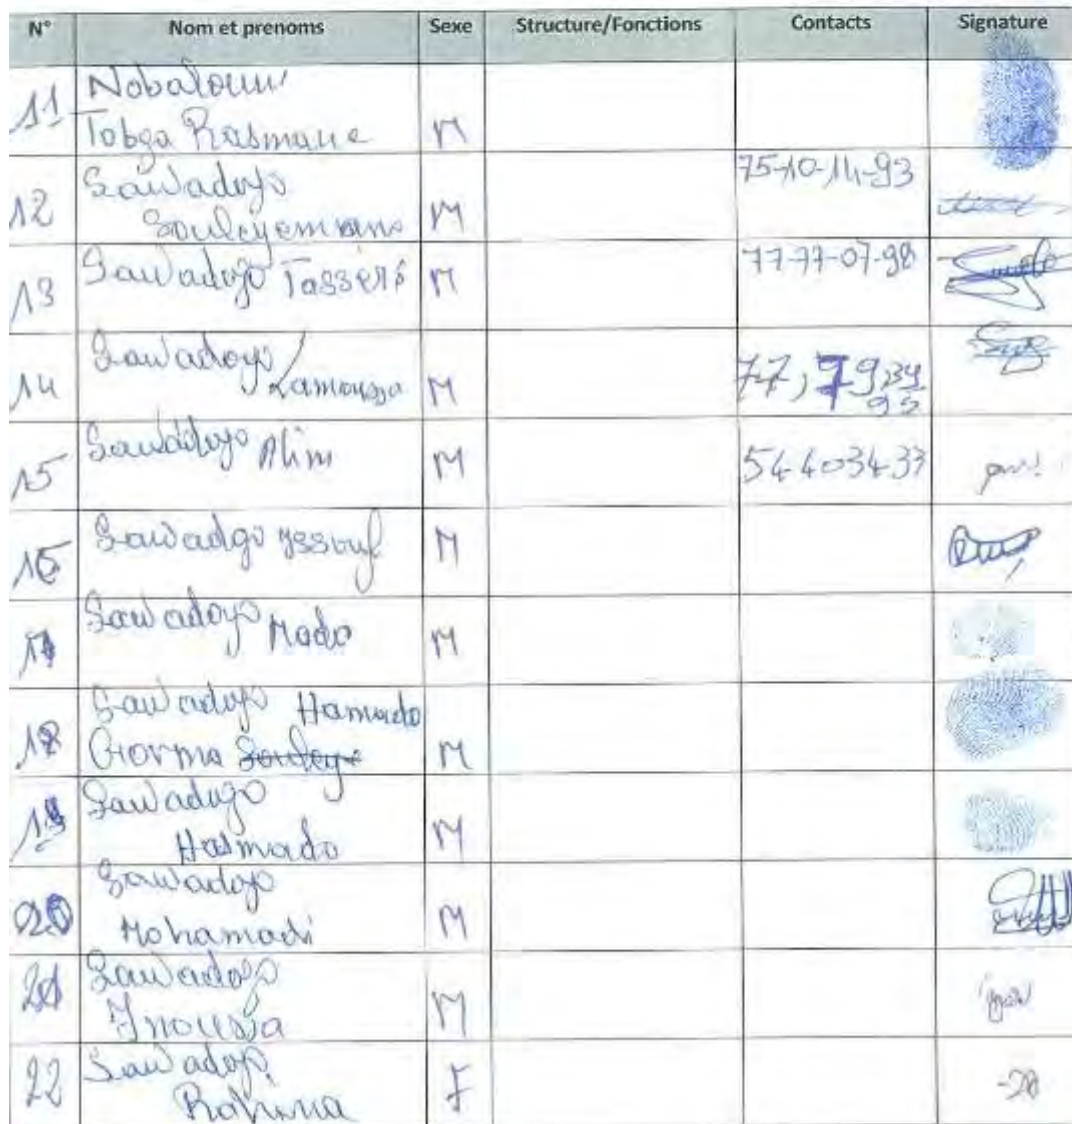 N° Nom et prenoms Sexe Structure/Fonctions Contacts Signature
11 Nobaloum
Tobga Rasmane M
12 Sawadogo 75-10-14-93
Souleyemane M
13 Sawadogo Tasséré M 77-77-07-98
14 Sawadogo
Lamoussa M 77, 79 34
95
15 Sawadogo Alim M 54403433
16 Sawadgo yssouf M
17 Sawadogo Mado M
18 Sawadogo Hamado
Gorma M
19 Sawadogo
Hamado M
20 Sawadogo
Mohamadi M
21 Sawadogo
Inoussa M
22 Sawadogo
Rahina F